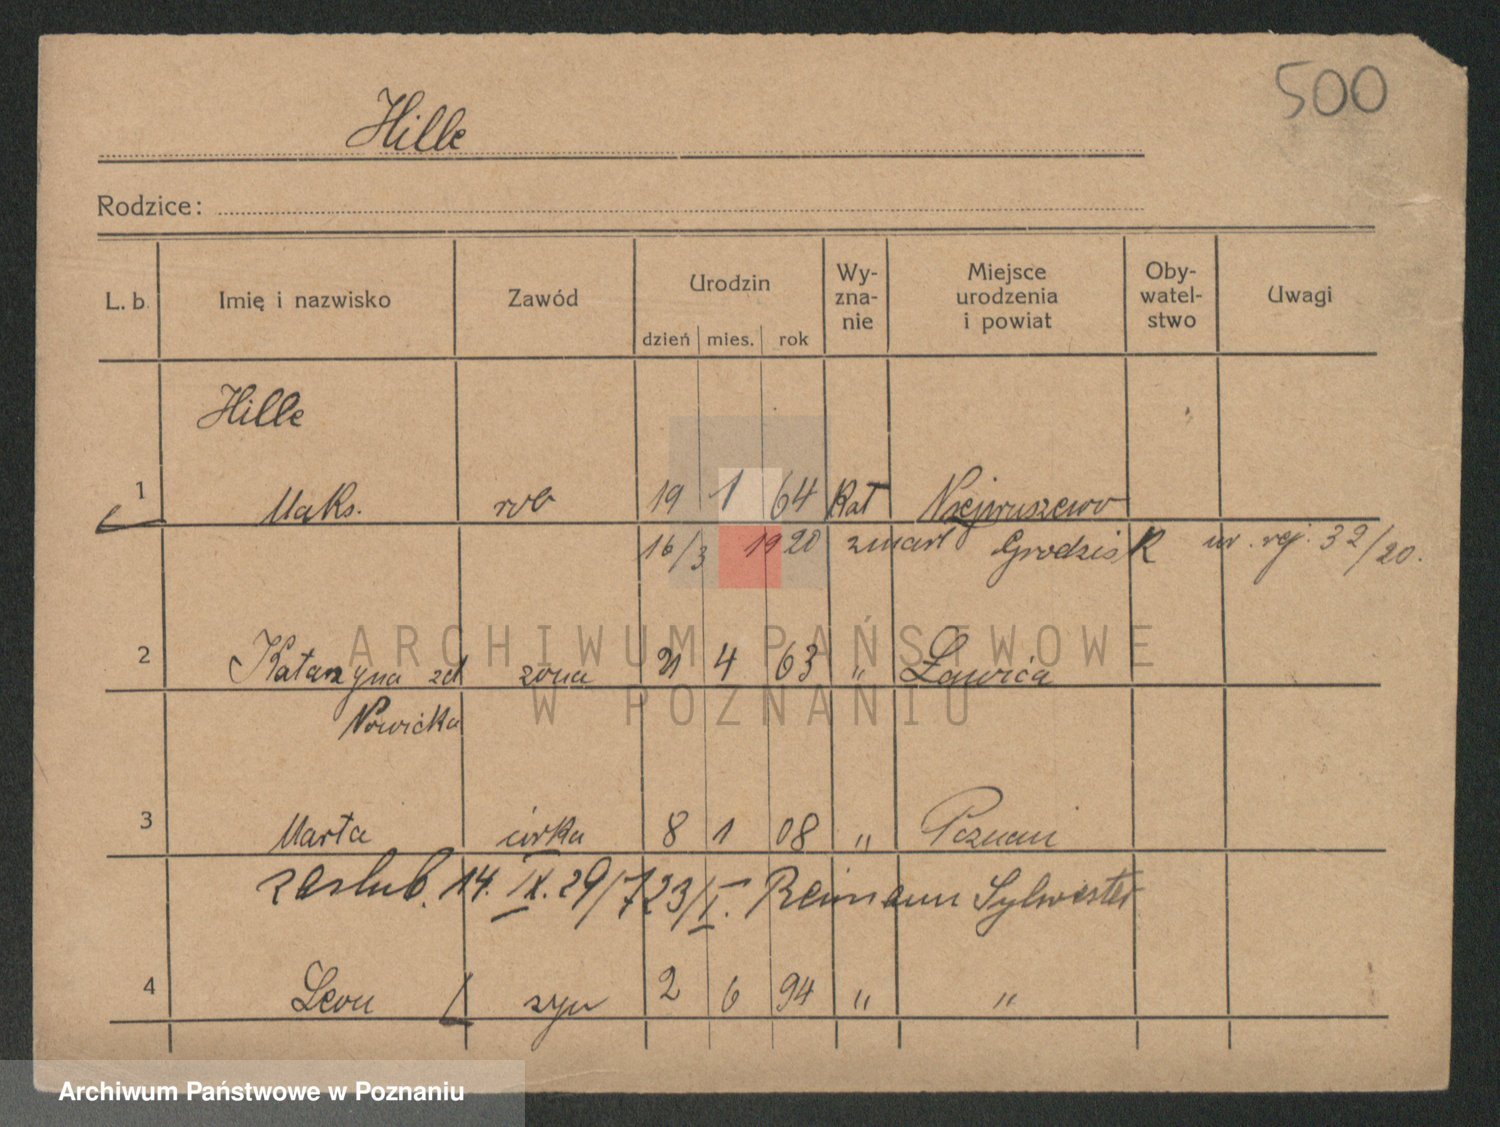 500
Hille
Rodzice:
L. b. Imię i nazwisko Zawód Urodzin Wy-zna-nie Miejsce urodzenia i powiat Oby-watel-stwo Uwagi
dzień mies. rok
Hille
1 Maks. rob 19 1 64 Kat
16/3 1920 zmarł Grodzisk nr. rej. 32/20.
ARCHIWUM PAŃSTWOWE
2 Katarzyna zd żona 21 4 63 " Ławica
W POZNANIU
Nowicka
3 Marta córka 8 1 08 " Poznań
zaślub. 14. IX. 29/7 23/I. Reimann Sylwester
4 Leon syn 2 6 94 " "
Archiwum Państwowe w Poznaniu